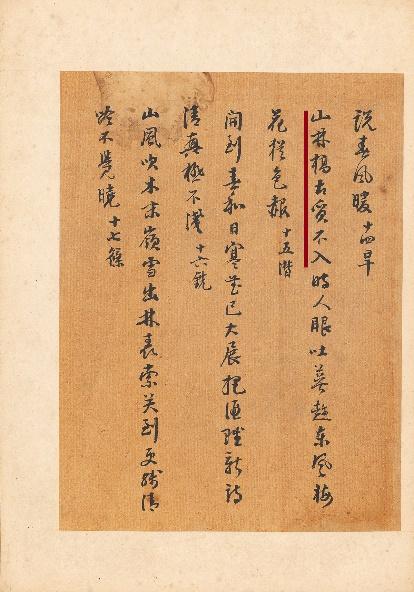 說春風暖 十四旱
山林楊古質不入時人眼吐萼趁东風梅
花從色赧 十五潸
開到春和日寒花已大展把酒賡新詩
清真極不淺 十六銑
山風吹木末嶺雪出林表索笑到更殘清
吟不覺曉 十七篠